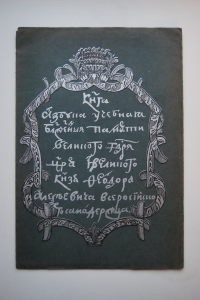 Книга
азбука учебная
блаженныя памяти
великого гдря
цря и великого
кнзя Феодора
Алексеевича всеросийско
самодержца